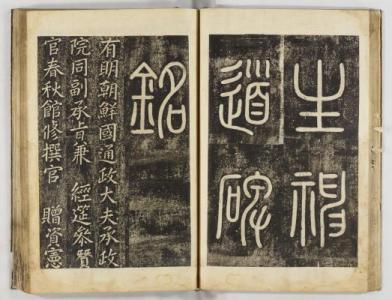 生神
道碑
銘
有明朝鮮國通政大夫承政
院同副承旨兼 經筵參贊
官春秋館修撰官 贈資憲